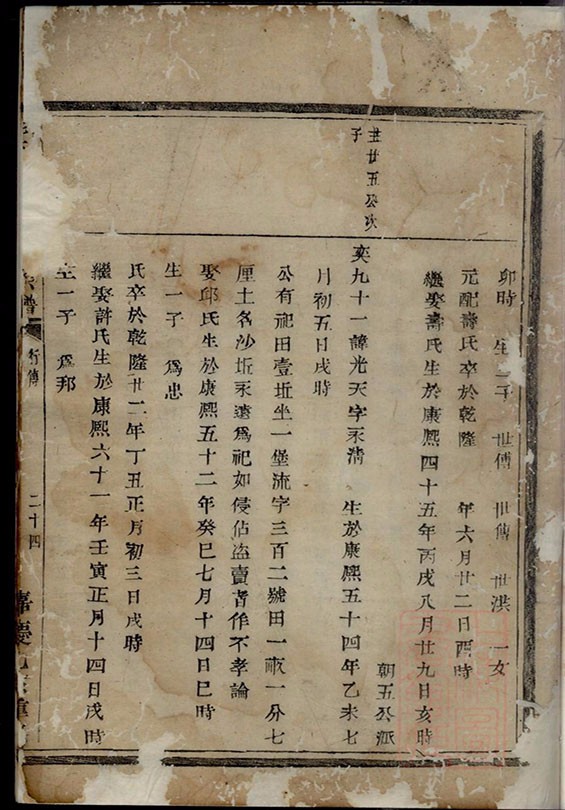 卯時 生二子 世傅 世傳 世洪 一女
元配壽氏卒於乾隆 年六月廿二日酉時
繼娶壽氏生於康熙四十五年丙戌八月廿九日亥時
朝五公派
圭廿五公次
子
奕九十一諱光天字永清 生於康熙五十四年乙未七
月初五日戌時
公有祀田壹坵坐一堡流字三百二號田一畝一分七
厘土名沙坵永遠爲祀如侵佔盜賣者作不孝論
娶邱氏生於康熙五十二年癸巳七月十四日巳時
生一子 爲忠
氏卒於乾隆廿二年丁丑正月初三日戌時
繼娶許氏生於康熙六十一年壬寅正月十四日戌時
生一子 爲邦
宗譜
行傳
二十四
嘉慶